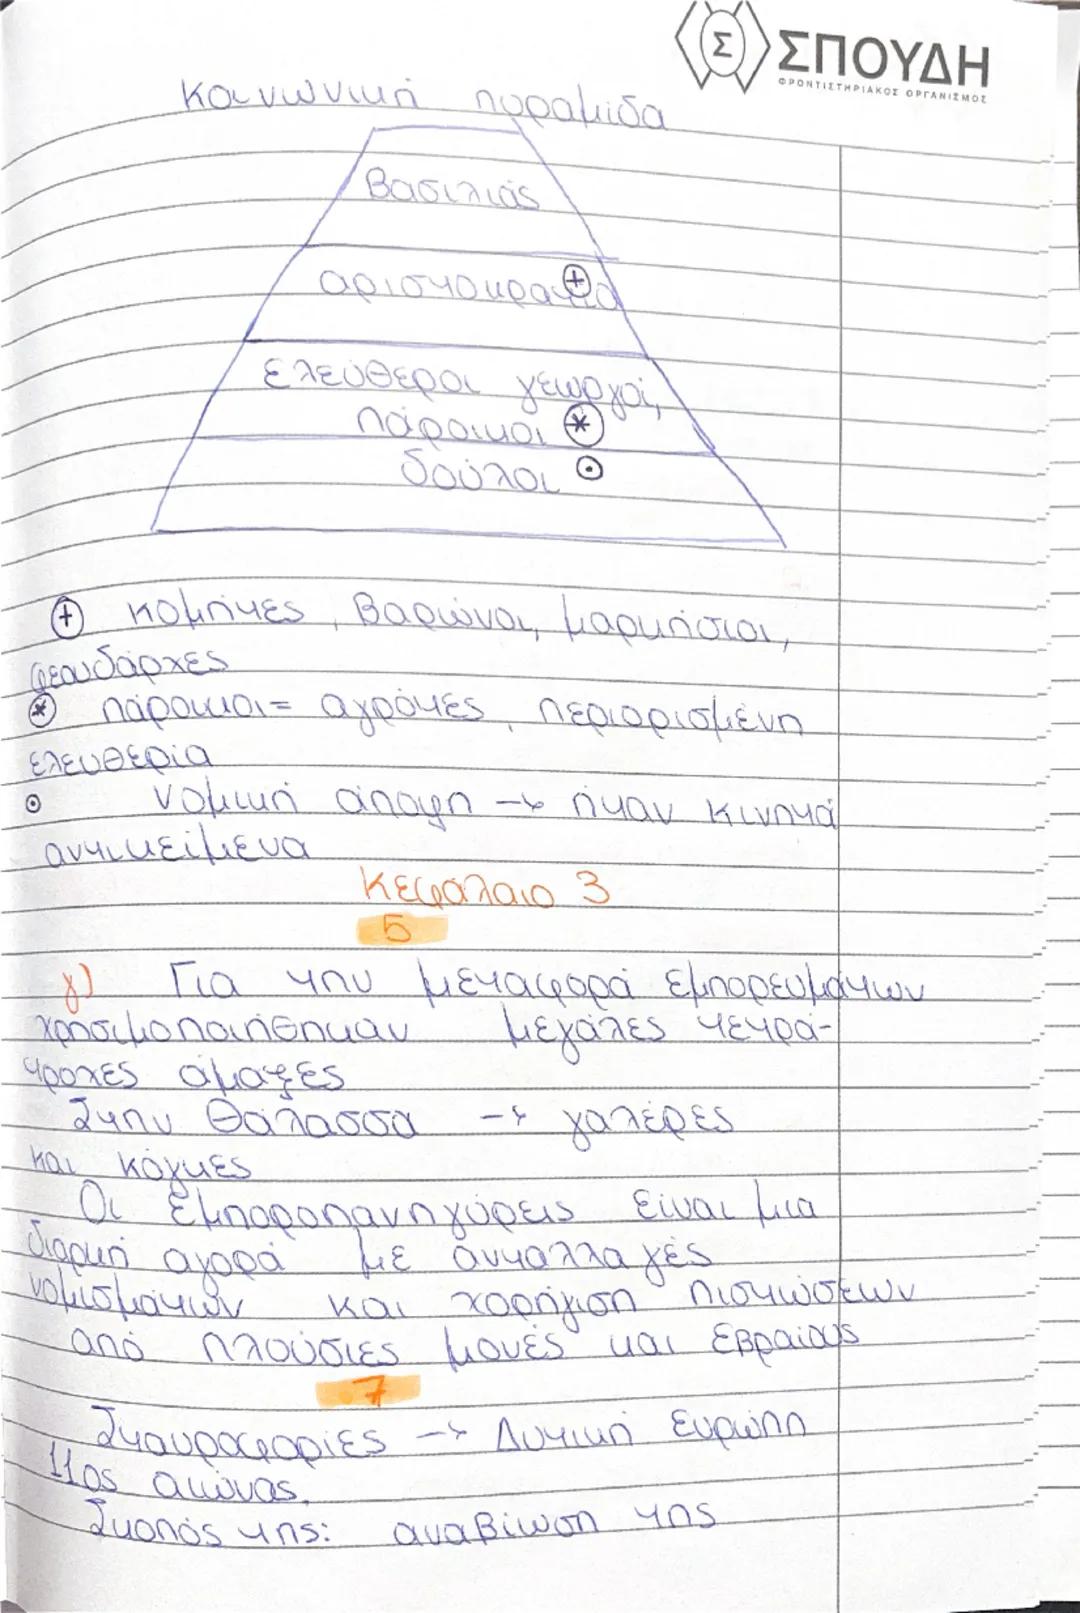 Σ ΣΠΟΥΔΗ
ΦΡΟΝΤΙΣΤΗΡΙΑΚΟΣ ΟΡΓΑΝΙΣΜΟΣ
Κοινωνική πυραμίδα
Βασιλιάς
αριστοκρατία ⊕
Ελεύθεροι γεωργοί,
πάροικοι *
δούλοι ⊙
⊕ κομήτες, Βαρώνοι, μαρκήσιοι,
φεουδάρχες
* πάροικοι= αγρότες, περιορισμένη
ελευθερία
⊙ νομική άποψη → ήταν κινητά
αντικείμενα
Κεφάλαιο 3
5
γ) Για την μεταφορά εμπορευμάτων
χρησιμοποιήθηκαν μεγάλες τετρά-
τροχες άμαξες
Στην Θάλασσα → γαλέρες
και κόγκες
Οι Εμποροπανηγύρεις είναι μια
διαρκή αγορά με ανταλλαγές
νομισμάτων και χορήγιση πιστώσεων
από πλούσιες μονές και Εβραίους
7
Σταυροφορίες → Δυτική Ευρώπη
11ος αιώνας.
Σκοπός της: αναβίωση της